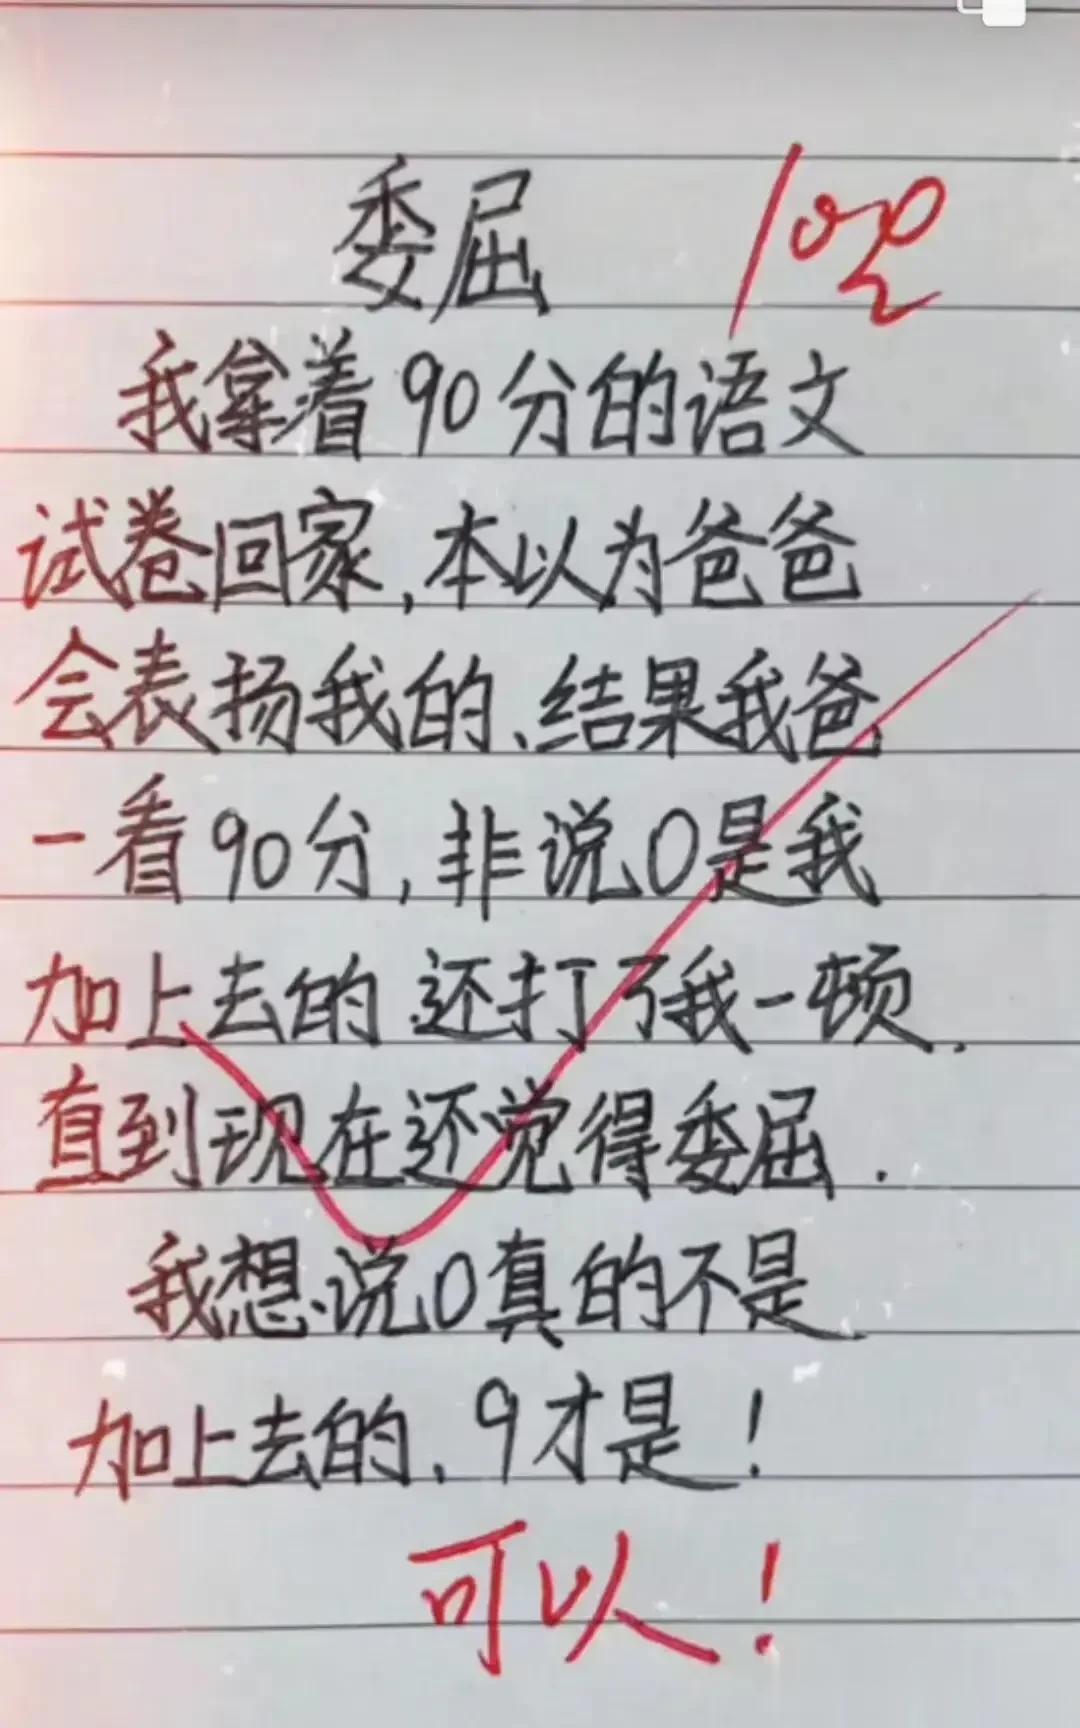 委屈 100
我拿着90分的语文
试卷回家,本以为爸爸
会表扬我的、结果我爸
一看90分,非说0是我
加上去的.还打了我一顿.
直到现在还觉得委屈.
我想说0真的不是
加上去的.9才是!
可以!